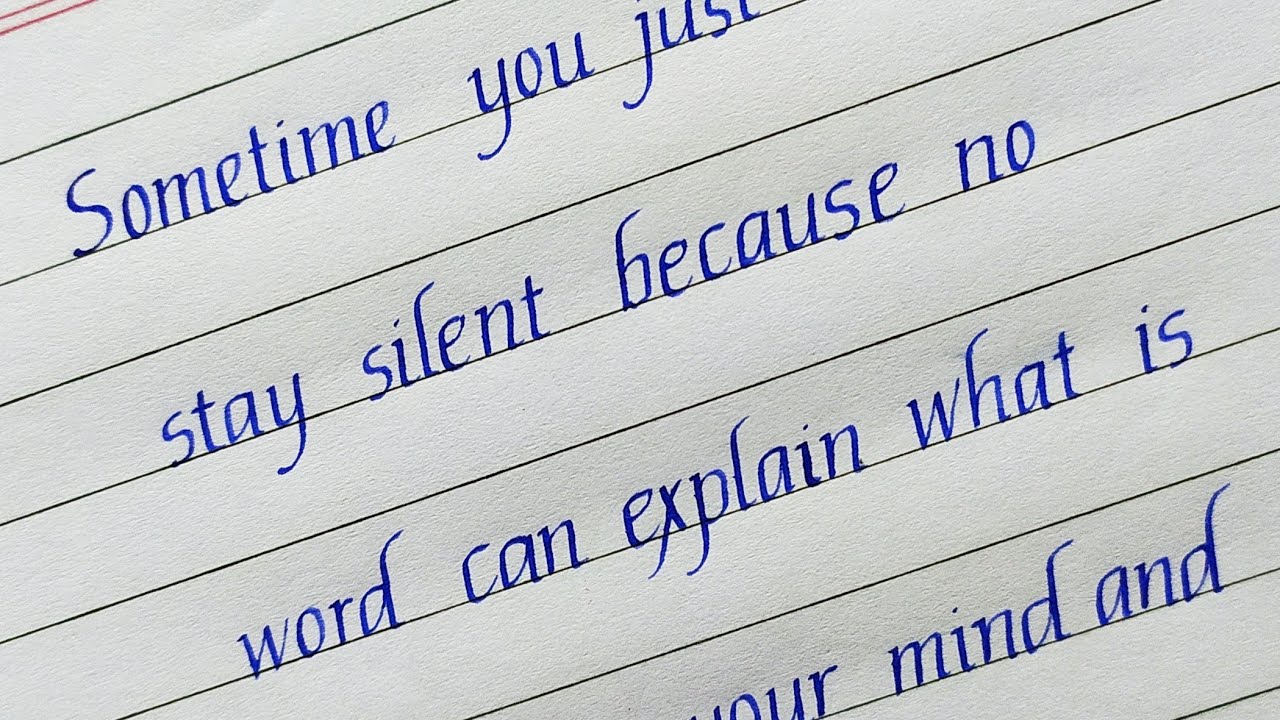 Sometime you just
stay silent because no
word can explain what is
your mind and